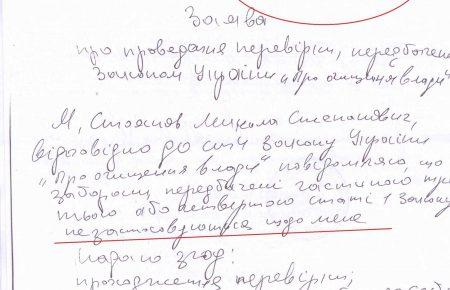 Заява
про проведення перевірки, передбаченої
Законом України „Про очищення влади"
Я, Стоянов Микола Степанович,
відповідно до статі закону України
„Про очищення влади" повідомляю, що
заборони, передбачені частиною тре
тього або четвертого статі 1 Закону
не застосовуються щодо мене
Надаю згоду:
проходження перевірки;